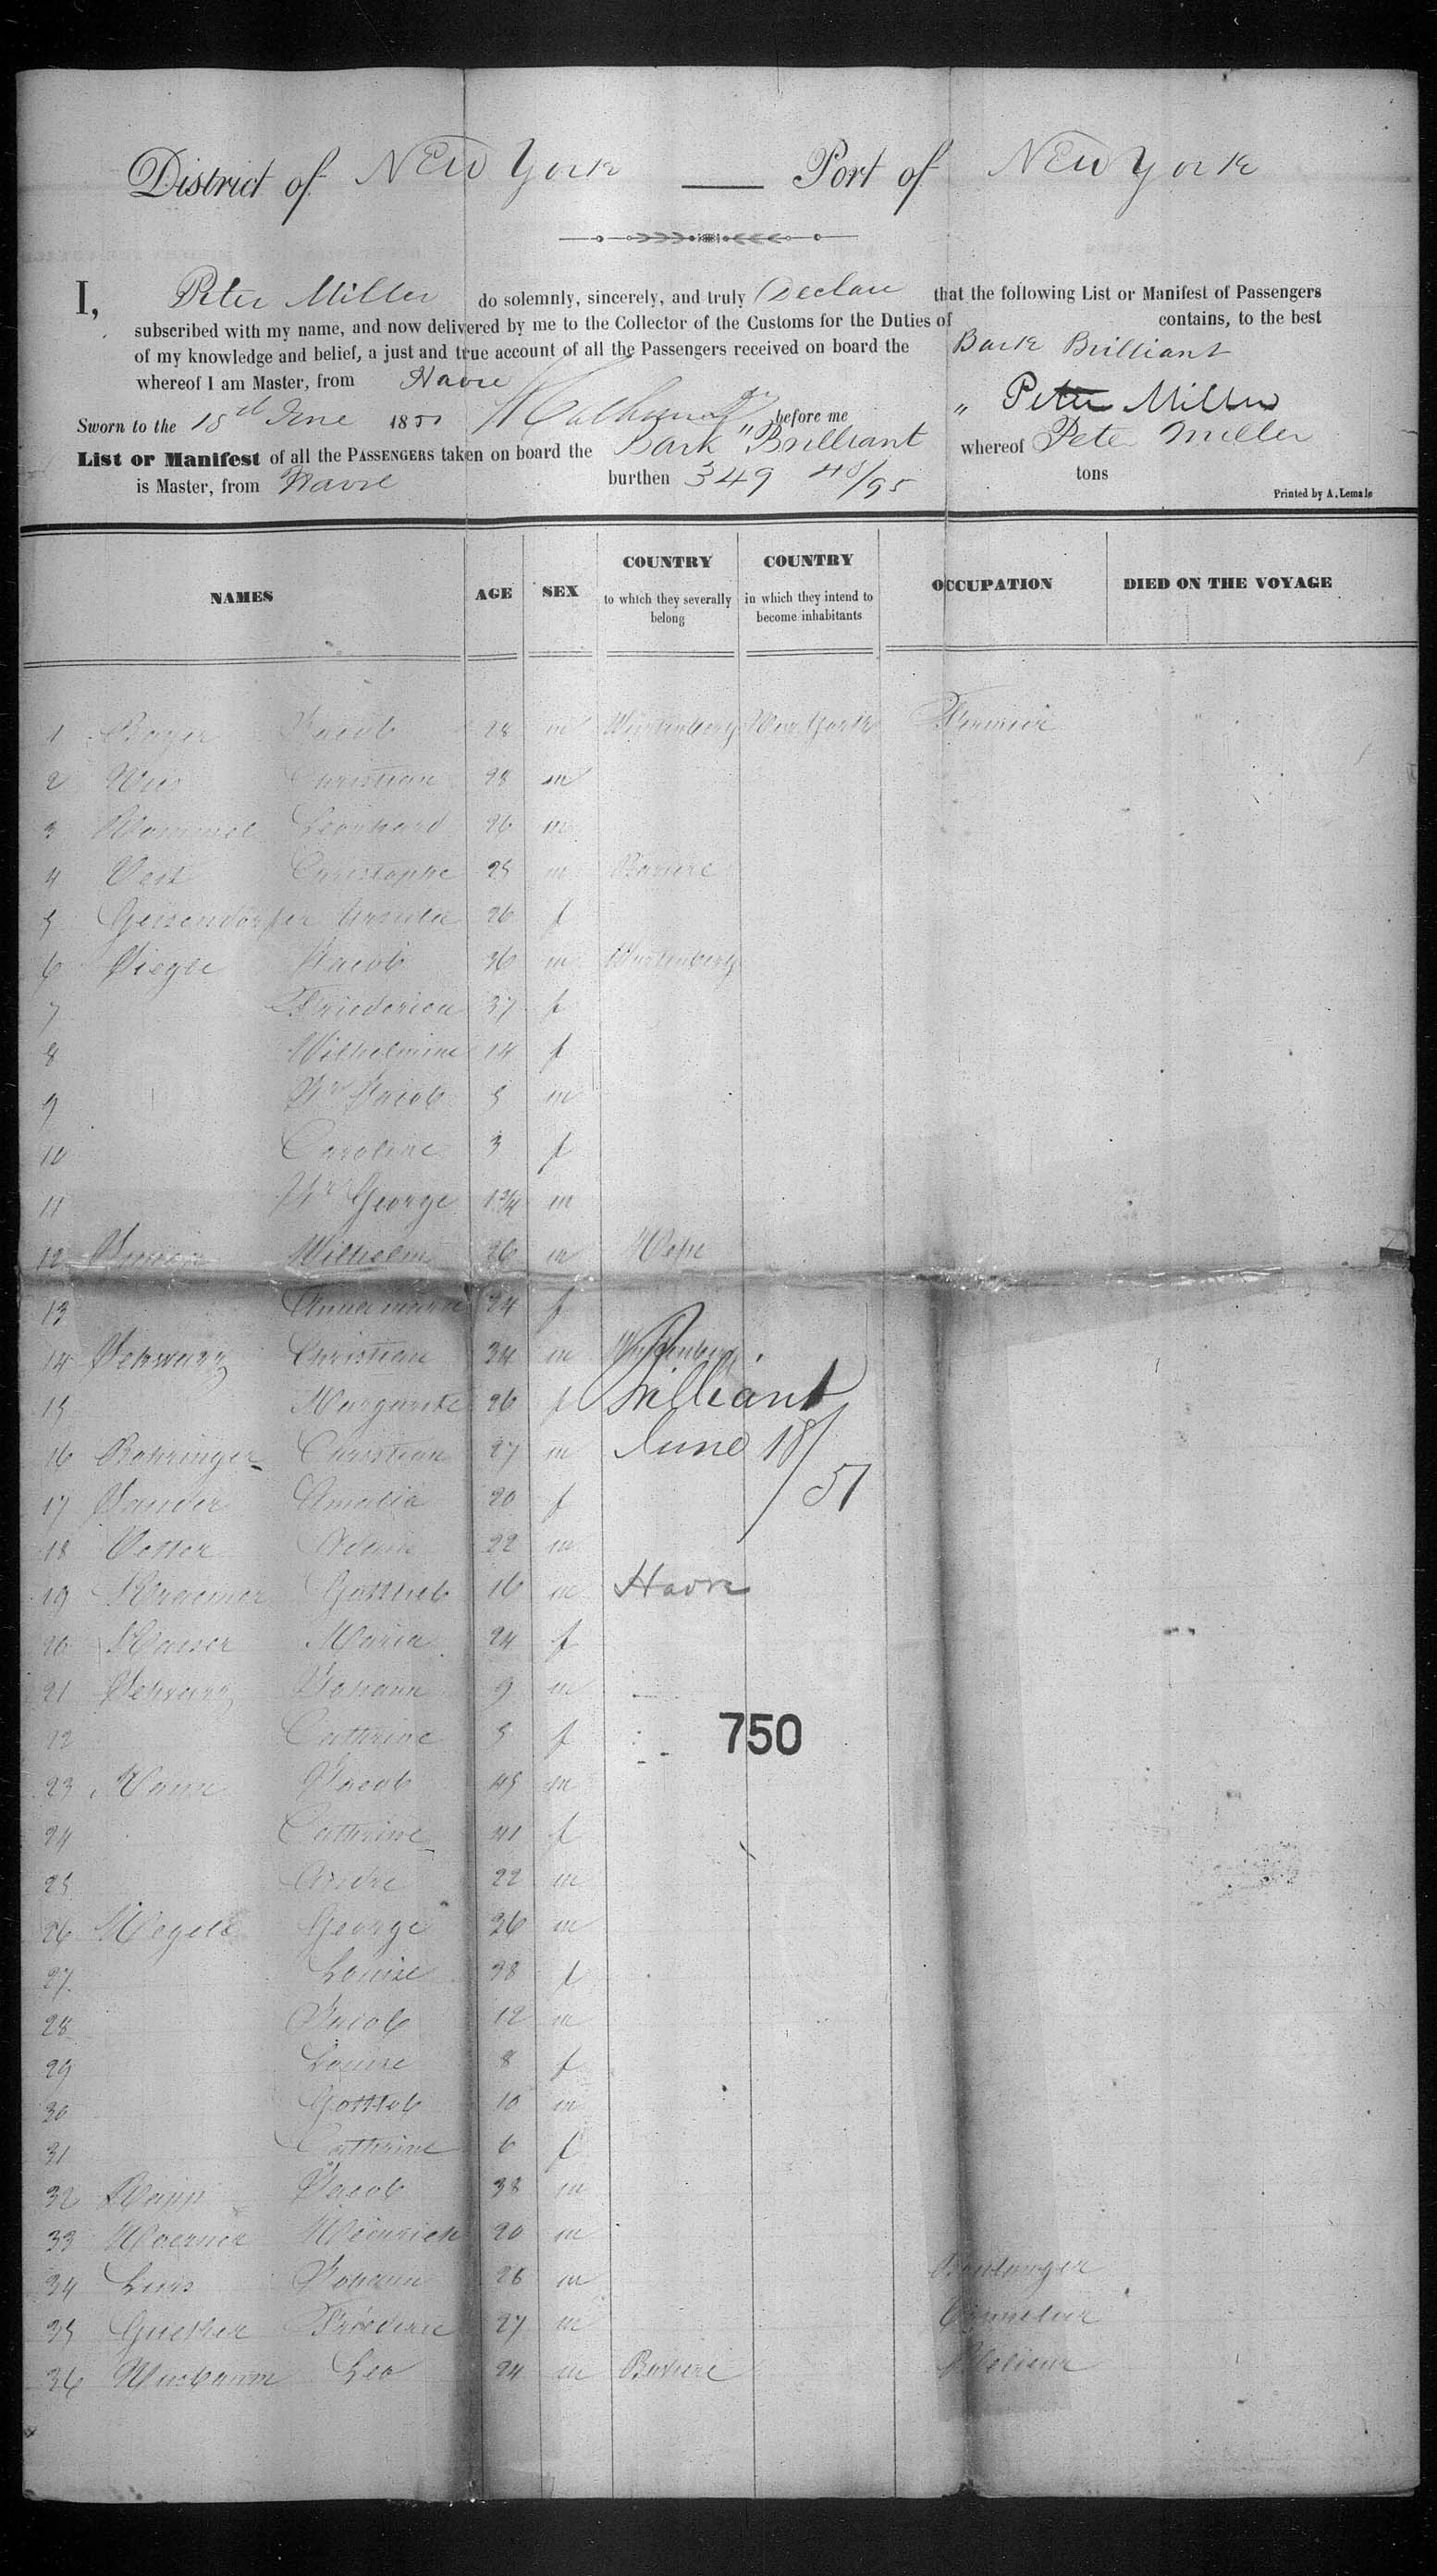 District of New York Port of New York
I, Peter Miller do solemnly, sincerely, and truly Declare that the following List or Manifest of Passengers
subscribed with my name, and now delivered by me to the Collector of the Customs for the Duties of contains, to the best
of my knowledge and belief, a just and true account of all the Passengers received on board the Bark Brilliant
whereof I am Master, from Havre
Peter Miller
Sworn to the 18th June 1851 before me
List or Manifest of all the PASSENGERS taken on board the Bark "Brilliant whereof Peter Miller
is Master, from Havre burthen 349 48/95 tons
Printed by A. Lemale
NAMES AGE SEX COUNTRY to which they severally belong COUNTRY in which they intend to become inhabitants OCCUPATION DIED ON THE VOYAGE
1 Jacob 28 m Wurtemberg New York
2 Christian 28 m
3 Leonhard 26 m
4 Veit Christophe 25 m Baviere
5 Geissendorfer Ursula 26 f
6 Siegle Jacob 36 m Wurtemberg
7 Friederica 37 f
8 Wilhelmine 14 f
9 Fr Jacob 5 m
10 Caroline 3 f
11 Fr George 1 3/4 m
12 Wilhelm 26 m
13 Annamaria 24 f
14 Schwarz Christian 34 m Wurtemberg
15 Margarethe 26 f
Brilliant
16 Bohringer Christian 27 m
June 18/51
17 Sauter Amalia 20 f
18 Vetter Adam 22 m
19 Kraemer Gottlieb 16 m
Havre
20 Kaiser Maria 24 f
21 Schwarz Johann 9 m
22 Cathrine 5 f
750
23 Jacob 45 m
24 Cathrine 41 f
25 Andre 22 m
26 George 36 m
27 Louise 38 f
28 Jacob 12 m
29 Louise 8 f
30 Gottlob 10 m
31 Cathrine 6 f
32 Jacob 38 m
33 Heinrich 20 m
34 Johann 26 m Boulanger
35 Frederic 27 m
36 Nusbaum Leo 24 m Baviere Relieur